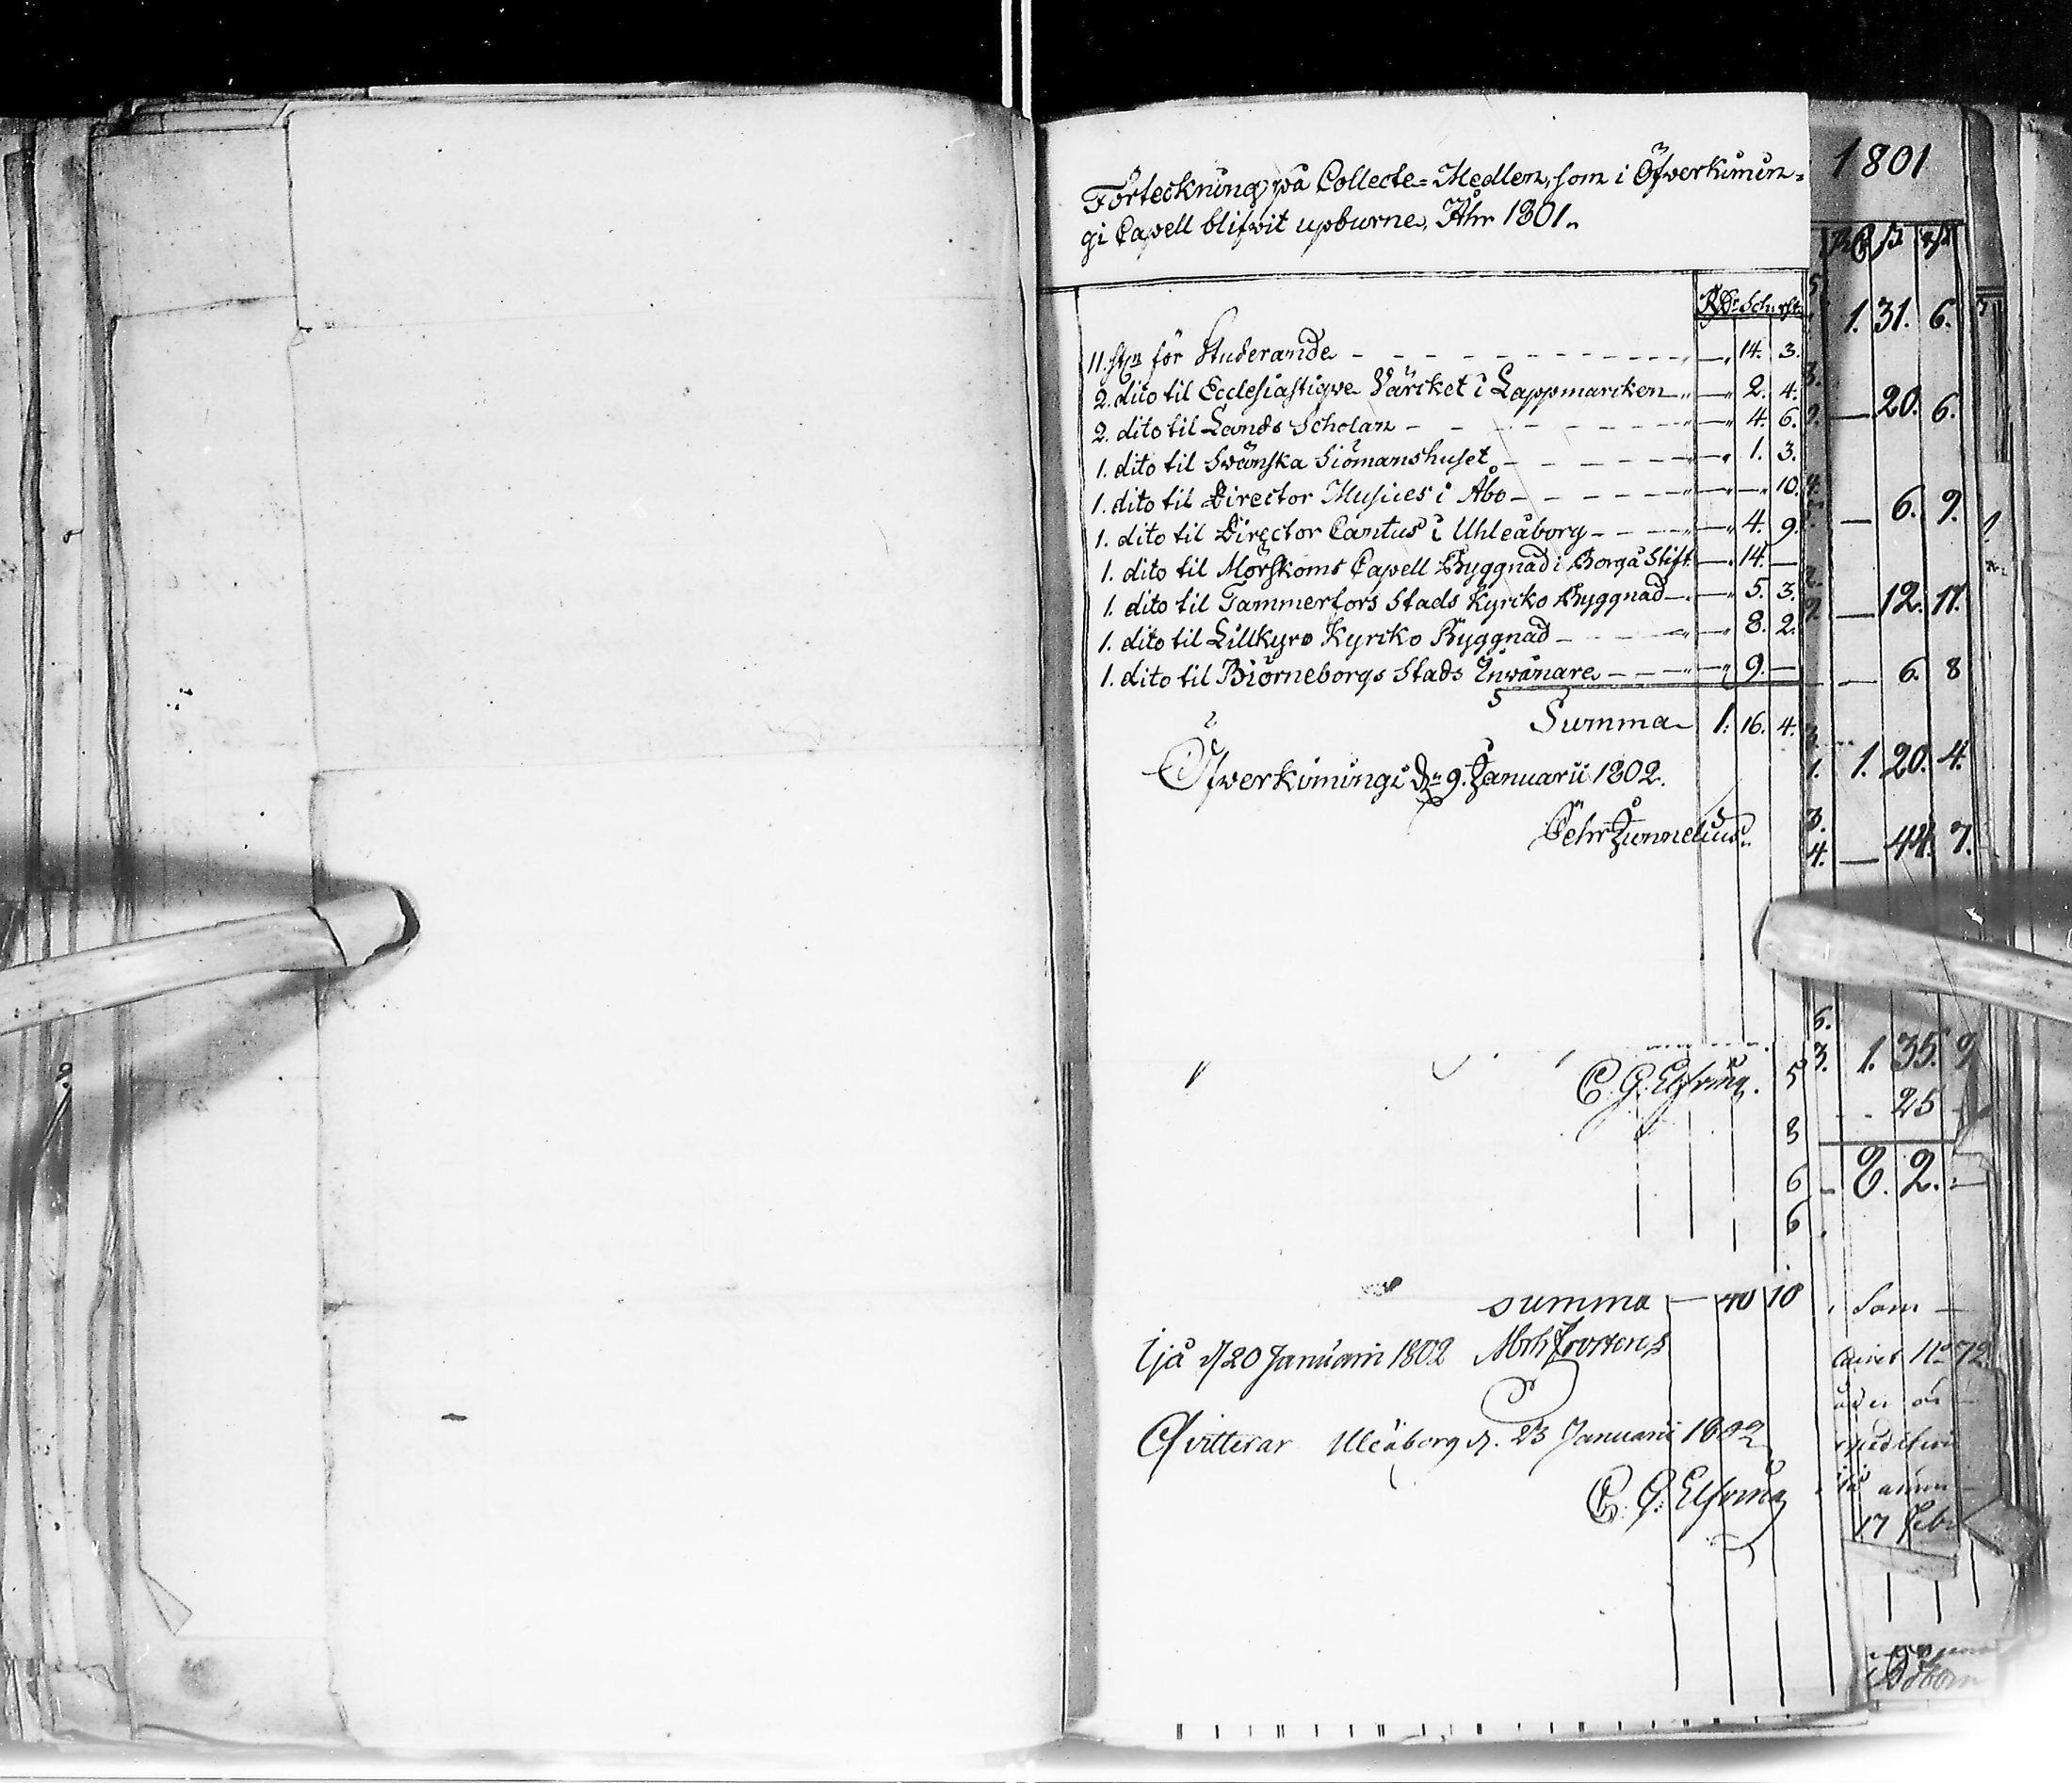 Förteckning på Collecte=Medlen, som i Öfwerkimin=
gi Capell blifwit upburne, Åhr 1801.
RD. Sch. rst.
11. st:n för Studerande - 14. 3.
2. dito til Ecclesiastiqve Värcket i Lappmarcken - 2. 4.
2. dito til Lands Scholan - 4. 6.
1. dito til Svänska Siömanshuset - 1. 3.
1. dito til Director Musices i Åbo - - 10.
1. dito til Director Cantus i Uhleåborg - 4. 9.
1. dito til Mörskoms Capell Byggnad i Borgå Stift - 14. -
1. dito til Tammerfors Stads Kyrcko Byggnad - 5. 3.
1. dito til Lillkyro Kyrcko Byggnad - 8. 2.
1. dito til Biörneborgs Stads Inwånare - 9. -
Summa 1. 16. 4.
Öfwerkimingi d:n 9. Januarii 1802.
Pehr Zunnelius
C. G. Elfving. 5
3
6
6
summa - 40 10
Ijå d 20 Januarii 1802
Qvitterar Uleåborg d. 23 Januarii 1802
C. G. Elfving
1801
1. 31. 6.
- 20. 6.
- 6. 9.
- 12. 11.
- 6. 8
1. 20. 4.
- 44. 7.
1. 35. 9
25
8. 2. -
Som
N:o 72
17 Febr